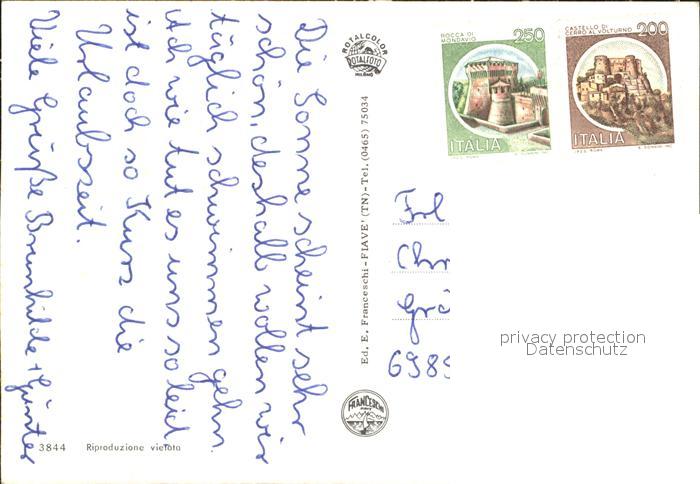 Die Sonne scheint sehr
schön, deshalb wollen wir
täglich schwimmen gehn.
Ach wie tut es uns so leid
ist doch so kurz die
Urlaubszeit.
Viele Grüße Brunhilde + Günter
3844 Riproduzione vietata
ROTALCOLOR
ROTALFOTO
MILANO
Ed. E. Franceschi - FIAVE' (TN) - Tel. (0465) 75034
FRANCESCHI
ROCCA DI
MONDAVIO
250
ITALIA
CASTELLO DI
CERRO AL VOLTURNO
200
ITALIA
Frl
Chr
Grä
698
privacy protection
Datenschutz